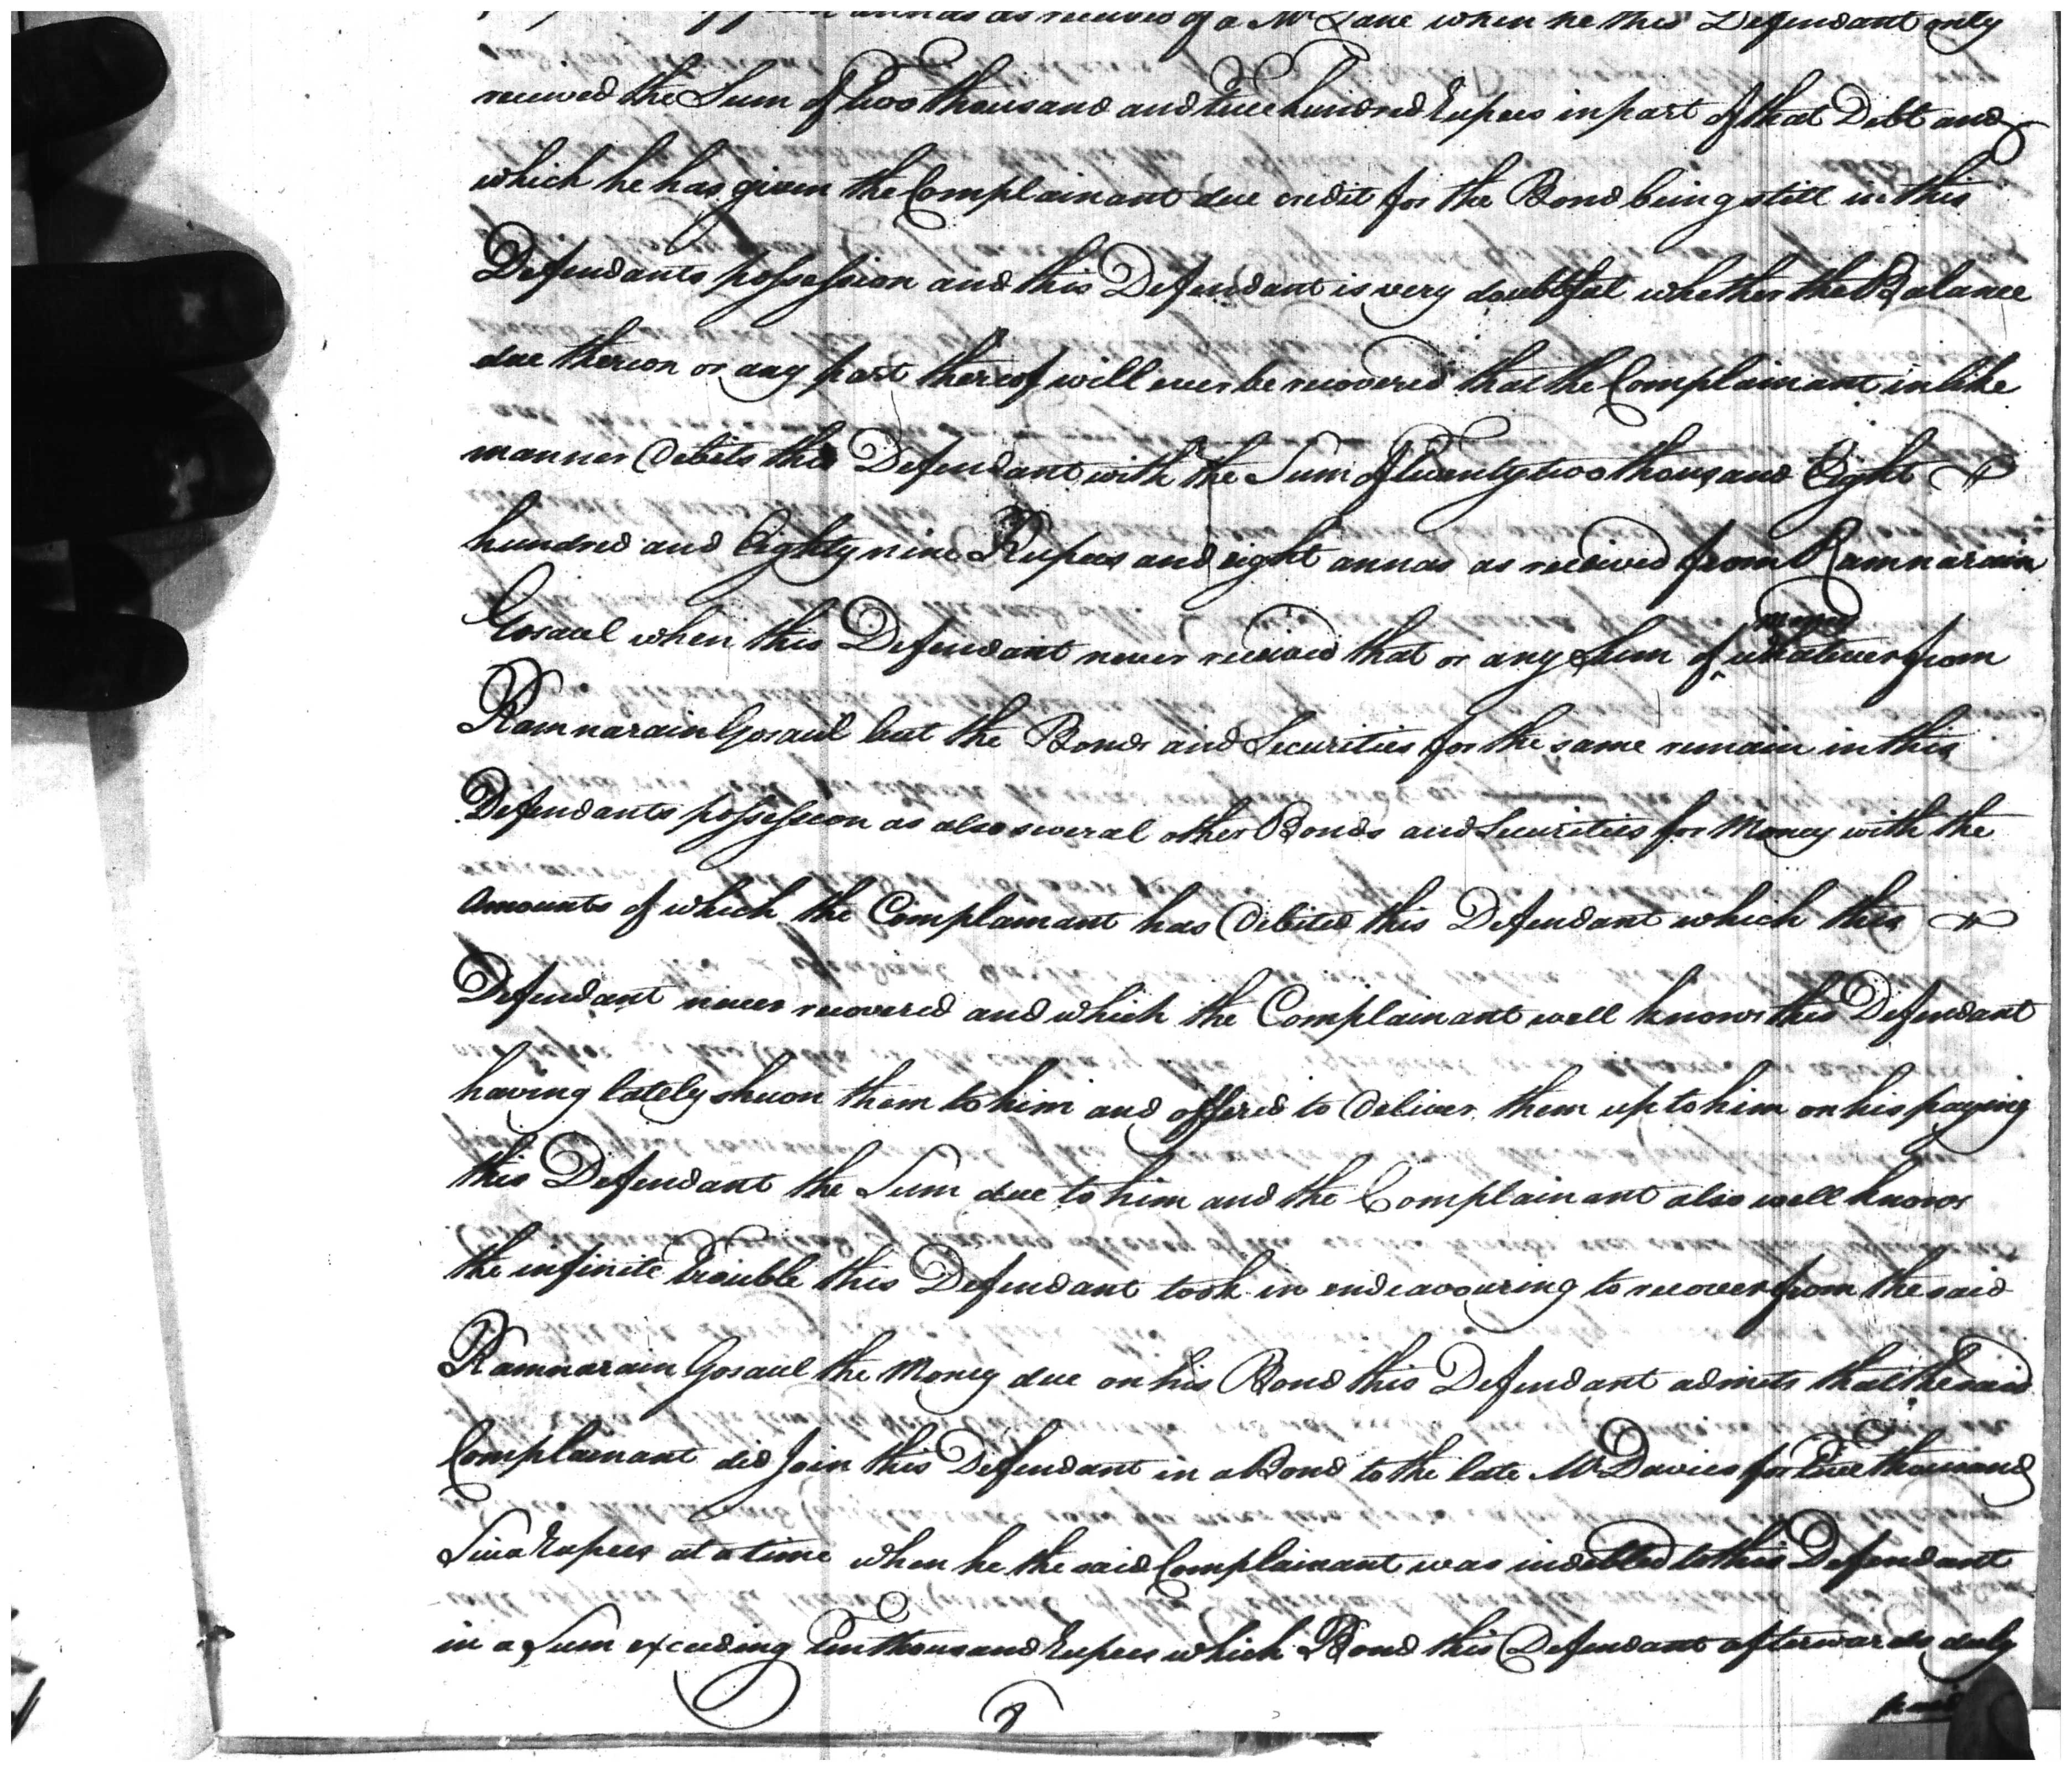 annas as received of a Mr Lane when he this Defendant only
received the Sum of two thousand and five hundred Rupees in part of that Debt and
which he has given the Complainant due credit for the Bond being still in this
Defendants possession and this Defendant is very doubtful whether the Balance
due thereon or any part thereof will ever be recovered that the Complainant in like
manner debits this Defendant with the Sum of twenty two thousand Eight
hundred and Eighty nine Rupees and eight annas as received from Ramnarain
money
Gosaul when this Defendant never received that or any Sum of whatever from
Ramnarain Gosaul but the Bonds and Securities for the same remain in this
Defendants possession as also several other Bonds and Securities for Money with the
Amounts of which the Complainant has debited this Defendant which this
Defendant never recovered and which the Complainant well knows this Defendant
having lately shewn them to him and offered to deliver them up to him on his paying
this Defendant the Sum due to him and the Complainant also well knows
the infinite trouble this Defendant took in endeavouring to recover from the said
Ramnarain Gosaul the Money due on his Bond this Defendant admits that the said
Complainant did Join this Defendant in a Bond to the late Mr Davies for five thousand
Sicca Rupees at a time when he the said Complainant was indebted to this Defendant
in a Sum exceeding ten thousand Rupees which Bond this Defendant afterwards duly
paid